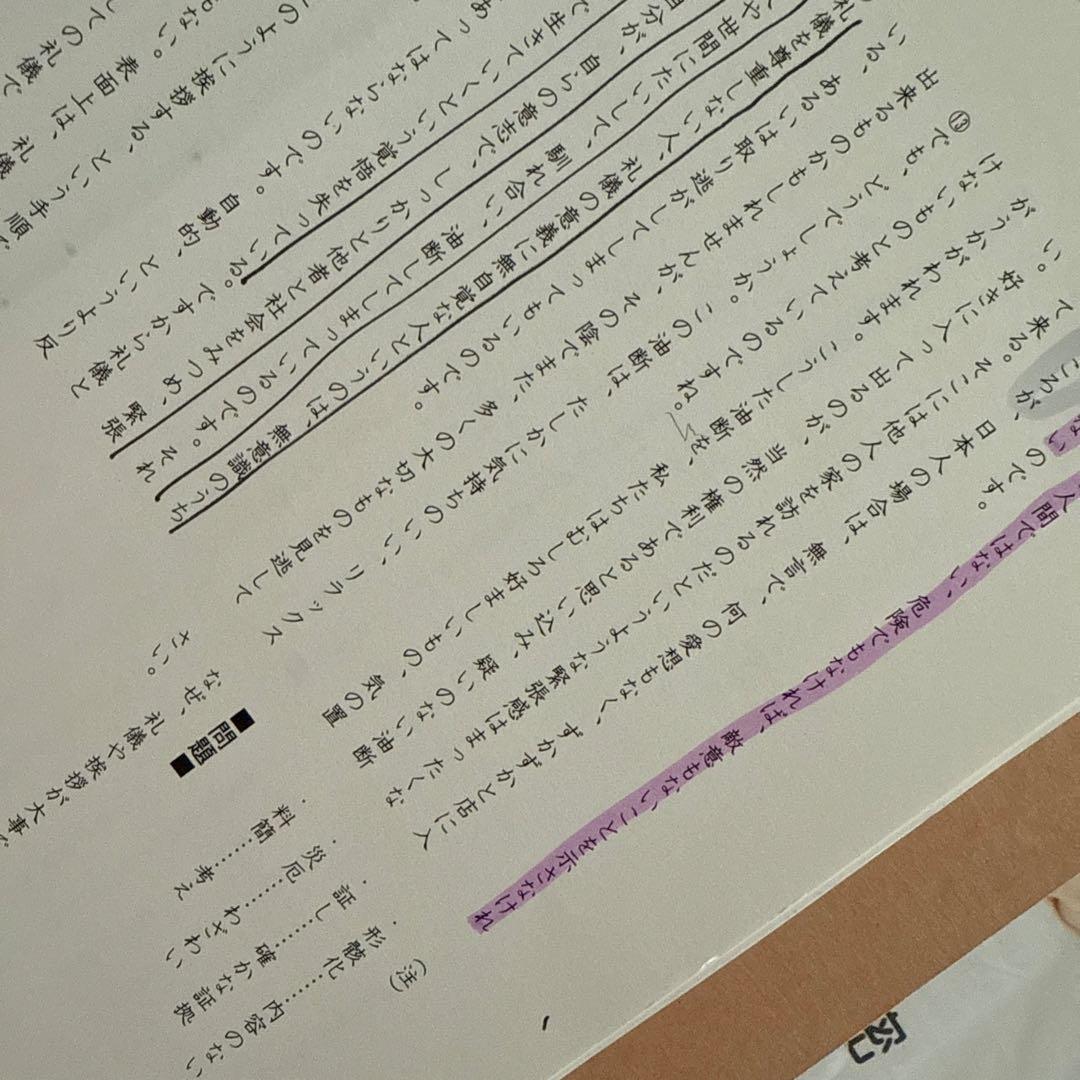 人間ではない、危険でもなければ、敵意もないことを示さなけれ
ない のです。
ころが、日本人の場合は、無言で、何の愛想もなく、ずかずかと店に入
て来る。そこには他人の家を訪れるのだというような緊張感はまったくな
い。好きに入って出るのが、当然の権利であると思い込み、疑いのない油断
がうかがわれます。こうした油断を、私たちはむしろ好ましいもの、気の置
けないものと考えているのですね。
⑬でも、どうでしょうか。この油断は、たしかに気持ちのいい、リラックス
出来るものかもしれませんが、その陰でまた、多くの大切なものを見逃して
いる、あるいは取り逃がしてしまってもいるのです。
礼儀を尊重しない人、礼儀の意義に無自覚な人というのは、無意識のうち
や世間にたいして、馴れ合い、油断してしまっているのです。それ
自分が、自らの意志で、しっかりと他者と社会をみつめ、緊張
で生きていくという覚悟を失っている。ですから礼儀と
あってはならないのです。自動的、というより反
のように挨拶する、という手順で
もない。表面上は、礼儀
ての礼儀で
(注)
・形骸化……内容のない
・証し……確かな証拠
・災厄……わざわい
・料簡……考え
■問題■
なぜ、礼儀や挨拶が大事で
さい。